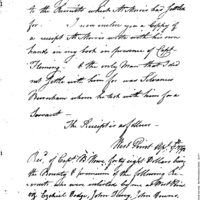 to the Recruits which Mr Norris had Jotted
for. I now inclose you a Coppy of
a receipt Mr Norris wrote with his own
hands in my book in presence of Capt
Fleming & the only Man that I did
not Settle with him for was Silvanus
whom he took with him for a
Servant
The Receipt is as follows.
West Point Apl 9th
Recd of Capt forty eight Dollars being
the Bounty & premium of the following
who were inlisted by me at West Point
Ezekiel Dodge, John Perry, John